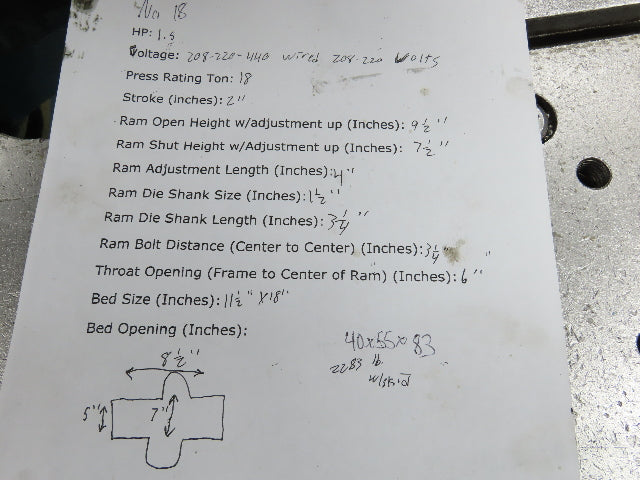 No 18
HP: 1.5
Voltage: 208-220-440 wired 208-220 Volts
Press Rating Ton: 18
Stroke (inches): 2"
Ram Open Height w/adjustment up (Inches): 9 1/2"
Ram Shut Height w/Adjustment up (Inches): 7 1/2"
Ram Adjustment Length (Inches): 4"
Ram Die Shank Size (Inches): 1 1/2"
Ram Die Shank Length (Inches): 3 1/4"
Ram Bolt Distance (Center to Center) (Inches): 3 1/4"
Throat Opening (Frame to Center of Ram) (Inches): 6"
Bed Size (Inches): 11 1/2" X 18"
Bed Opening (Inches):
8 1/2"
5"
7"
40x55x83
2283 lb
w/skid